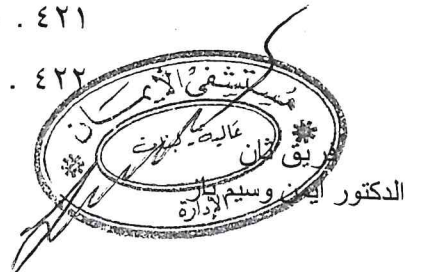 . ٤٢١
. ٤٢٢
مستشفى الإيمان
عاليه - لبنان
فريق ثان
الدكتور ايمن وسيم باز
الإدارة